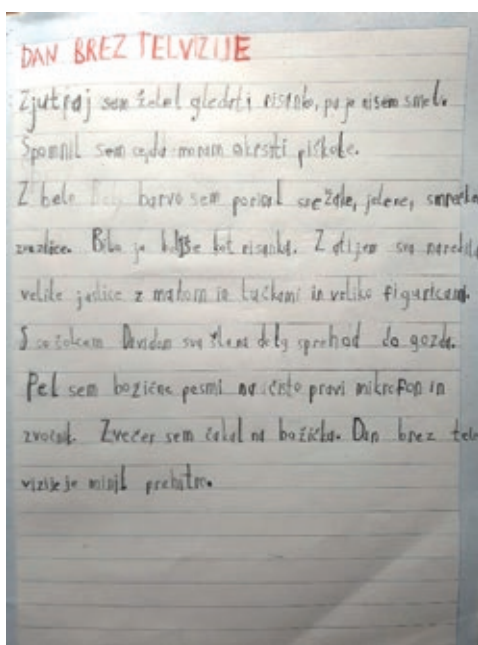 DAN BREZ TELVIZIJE
Zjutraj sem želel gledati risanko, pa je nisem smel.
Spomnil sem se, da moram okrasiti piškote.
Z belo barvo sem porisal snežake, jelene, smrečke
zvezdice. Bilo je boljše kot risanka. Z atijem sva naredila
velike jaslice z mahom in lučkami in veliko figuricami.
S sošolcem Davidom sva šla na dolg sprehod do gozda.
Pel sem božične pesmi na čisto pravi mikrofon in
zvočnik. Zvečer sem čakal na božička. Dan brez tele
vizije je minil prehitro.